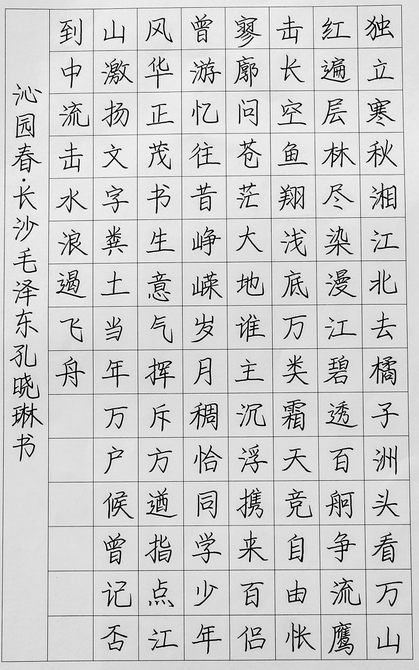 独立寒秋湘江北去橘子洲头看万山
红遍层林尽染漫江碧透百舸争流鹰
击长空鱼翔浅底万类霜天竞自由怅
寥廓问苍茫大地谁主沉浮携来百侣
曾游忆往昔峥嵘岁月稠恰同学少年
风华正茂书生意气挥斥方遒指点江
山激扬文字粪土当年万户候曾记否
到中流击水浪遏飞舟
沁园春·长沙毛泽东孔晓琳书